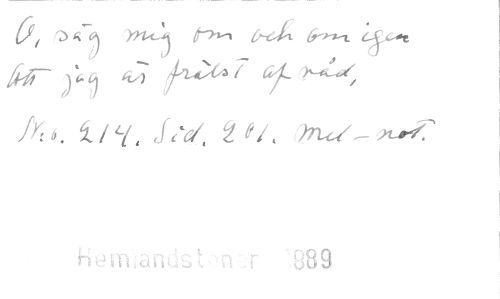 O, säg mig om och om igen
Att jag är frälst af nåd,
No. 214. Sid. 201. Mel-not.
Hemlandstoner 1889